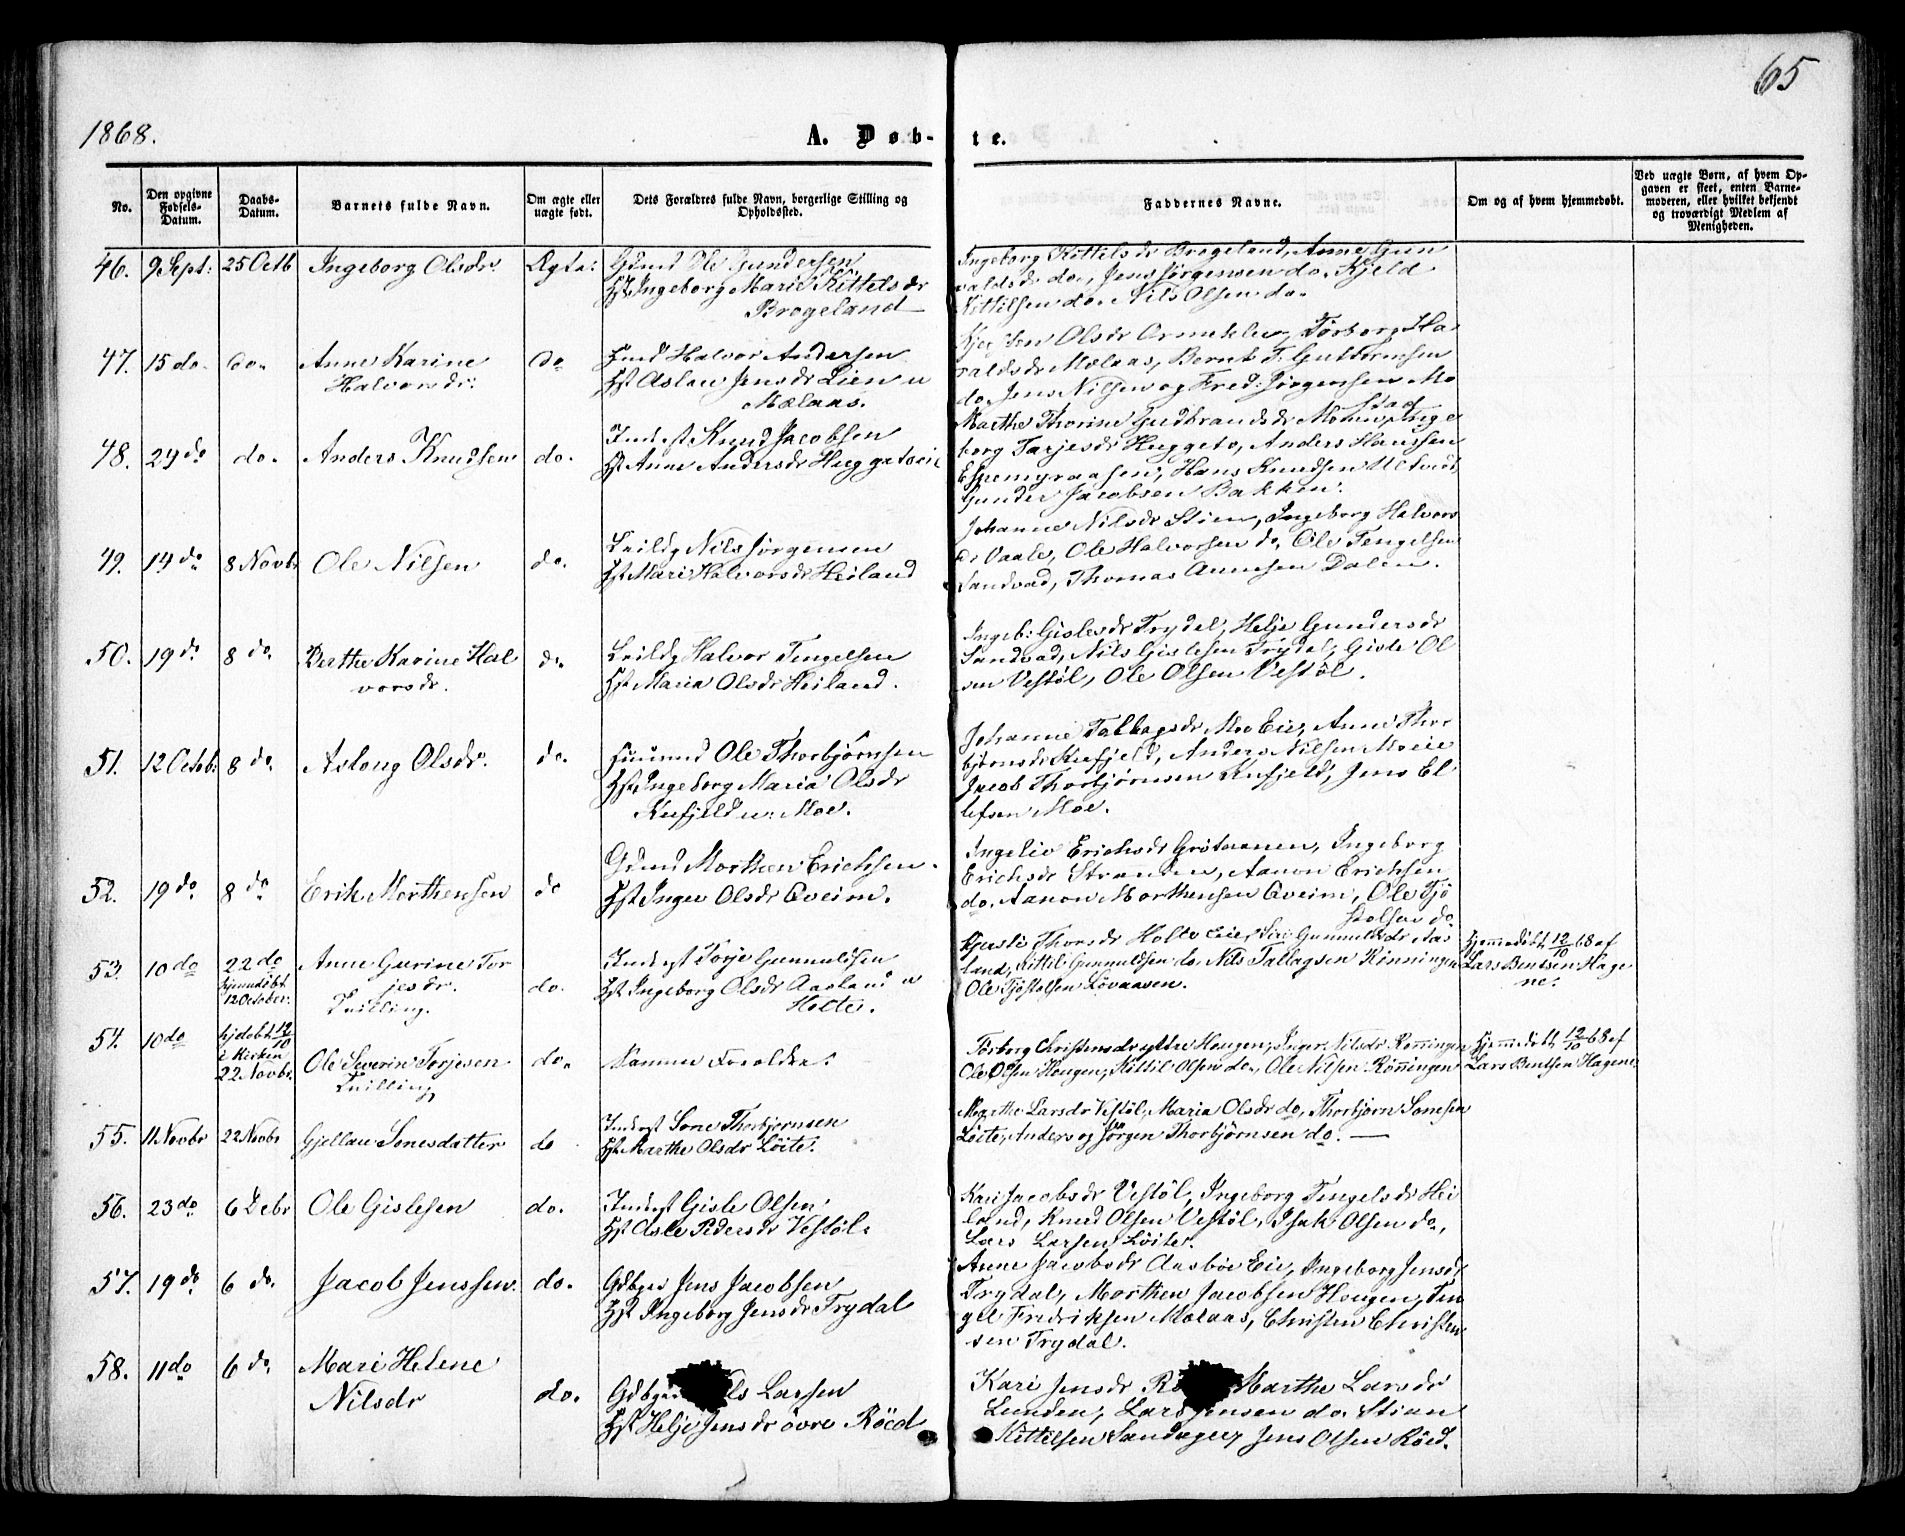 65
1868.
A. Døb-te.
No.
Den opgivne Fødsels-Datum.
Daabs-Datum.
Barnets fulde Navn.
Om ægte eller uægte født.
Dets Forældres fulde Navn, borgerlige Stilling og Opholdssted.
Faddernes Navne.
Om og af hvem hjemmedøbt.
Ved uægte Børn, af hvem Op-
gaven er skeet, enten Barne-
moderen, eller hvilket bekjendt
og troværdigt Medlem af
Menigheden.
46. 9 Sept: 25 Octb Ingeborg Olsdr. Ægte:
Gdmd Ole Gundersen
Hst Ingeborg Marie Kittelsdr
Brogeland
Ingeborg Kittelsdr Brogeland, Anne Gun
valdsdr do, Jens Jørgensen do. Kjeld
Kittilsen do. Nils Olsen do.
47. 15 do. do. Anne Karine do
Halvorsdr:
Halvor Andersen
Hst Aslau Jensdr Lien u
Mælaas.
Olsdr Tørborg Ha
raldsdr Mælaas, Bernt T. Guttormsen
do. Jens Nilsen og Fred: Jørgensen Mo
48. 29 do do. Anders Knudsen do.
Inderst Knud Jacobsen
Hst Anne Andersdr Huggetoeie
Marthe Thorine Gudbrandsdr Momen, Inge
borg Tarjesdr Huggeto, Anders Hanssen
Espemyraasen, Hans Knudsen
Gunder Jacobsen Bakken.
49. 14 do 8 Novbr Ole Nilsen do.
Leildg Nils Jørgensen
Hst Mari Halvorsdr Heiland
Johanne Nilsdr Stien, Ingeborg Halvors
dr Vaale, Ole Halvorsen do, Ole Tengelsen
Sandvad, Thomas Aunesen Dalen.
50. 19 do 8 do. Berthe Karine Hal do
vorsdr.
Leildg Halvor Tengelsen
Hst Maria Olsdr Heiland.
Ingeb: Gislesdr Trydal, Helje Gundersdr
Sandvad, Nils Gislesen Trydal, Gisle Ol
sen Vestøl, Ole Olsen Vestøl.
51. 12 Octob: 8 do. Aslaug Olsdr. do.
Ole Thorbjørnsen
Hst Ingeborg Maria Olsdr
Knefjeld u. Moe.
Johanne Tallagsdr. Moe Eie, Anne Thor
bjørnsdr Knefjeld, Anders Nilsen Moeie
Jacob Thorbjørnsen Knefjeld, Jens El
lefsen Moe.
52. 19 do 8 do Erik Morthensen do
Gdmd Morthen Erichsen.
Hst Inger Olsdr Eveim.
Ingeliv Erichsdr Ingeborg
Erichsdr Aanon Erichsen
do. Aanon Morthensen Eveim, Ole Tjø
stolsen do
53. 10 do 22 do Anne Gurine Tor do.
hjemmdøbt jesdr.
12 October. Tvilling.
Inderst Torje Gunnuldsen
Hst Ingeborg Olsdr Aasland u
Holte.
Kjersti Thorsdr Holte Eie, Siri Gunnuldsdr Aas
land, Kittil Gunnuldsen do. Nils Tallagsen Rönningen
Ole Tjøstolsen Lövaasen.
Hjemmedöbt 12/10 68 af
Lars Bentsen Hage
ne.
54. 10 do hjdøbt 12/10
i Kirken
22 Novbr.
Ole Severin Torjesen do.
Tvilling
Samme Forældre.
Tørborg Christensdr yttre Hougen, Inger Nilsdr Rønningen
Ole Olsen Hougen, Kittil Olsen do., Ole Nilsen Rönningen
Hjemmedöbt 12/10 68 af
Lars Bentsen Hagene
55. 11 Novbr 22 Novbr Gjellau Sonesdatter do
Inderst Sone Thorbjørnsen
Hst Marthe Olsdr Löite.
Marthe Larsdr Vestøl, Maria Olsdr do, Thorbjørn Sonesen
Löite, Anders og Jørgen Thorbjørnsen do. —
56. 23 do 6 Debr Ole Gislesen do.
Inderst Gisle Olsen
Hst Asle Pedersdr Vestøl.
Kari Jacobsdr Vestøl, Ingeborg Tengelsdr Hei
land, Knud Olsen Vestøl, Isak Olsen do,
Lars Larsen Löite.
57. 19 do 6 do. Jacob Jenssen. do.
Gdbger Jens Jacobsen
Hst Ingeborg Jensdr Trydal
Anne Jacobsdr Aasböe Eie, Ingeborg Jensdr
Trydal, Morthen Jacobsen Hougen, Ten
gel Fredriksen Mælaas, Christen Christen
sen Trydal.
58. 11 do 6 do. Mari Helene
Nilsdr do.
Gdbger Larsen
Hst Helje Jensdr övre Röed
Kari Jensdr Marthe Larsdr
Lunden, Lars Jensen do. Stian
Kittelsen Jens Olsen Röed.